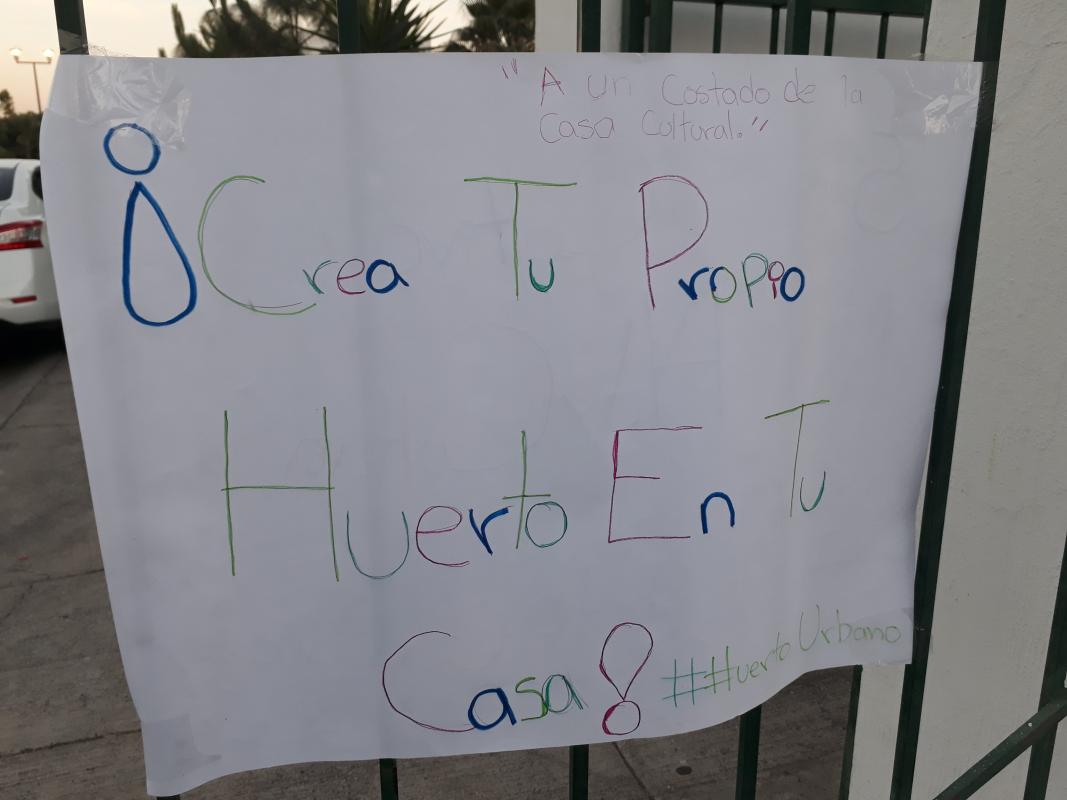 "A un Costado de la
Casa Cultural."
¡Crea Tu Propio
Huerto En Tu
Casa!
##HuertoUrbano